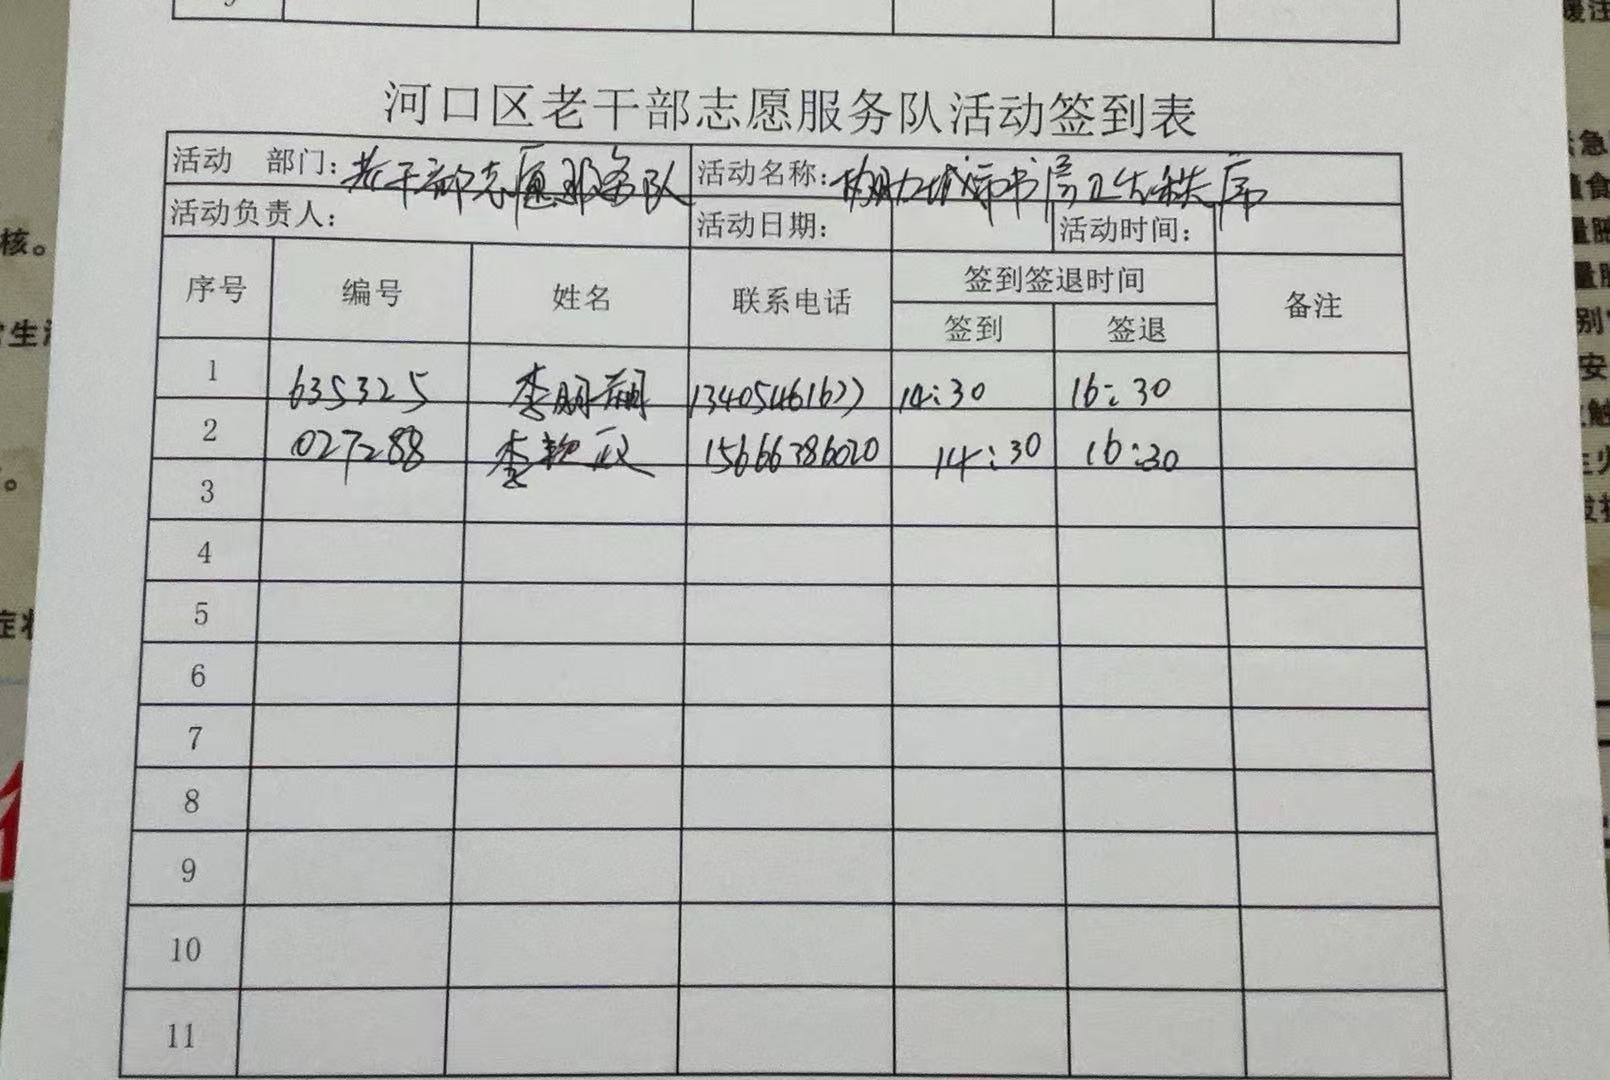 河口区老干部志愿服务队活动签到表
活动 部门：老干部志愿服务队 活动名称：协助城市书房卫生秩序
活动负责人： 活动日期： 活动时间：
序号 编号 姓名 联系电话 签到签退时间 备注
签到 签退
1 635325 李 14:30 16:30
2 027288 李 15666386020 14:30 16:30
3
4
5
6
7
8
9
10
11
核。
症状